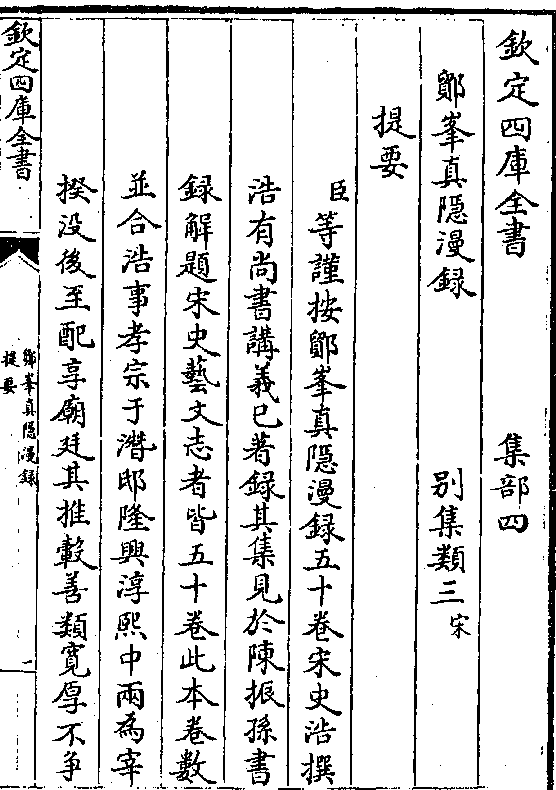 欽定四庫全書　集部四
鄮峯真隱漫録　别集類三宋
提要
臣等謹按鄮峯真隱漫録五十卷宋史浩撰
浩有尚書講義已著録其集見於陳振孫書
録解題宋史藝文志者皆五十卷此本卷數
並合浩事孝宗于潛邸隆興淳熙中兩為宰
揆没後至配享廟廷其推轂善類寛厚不爭
欽定四庫全書
鄮峯真隱漫録
提要
一